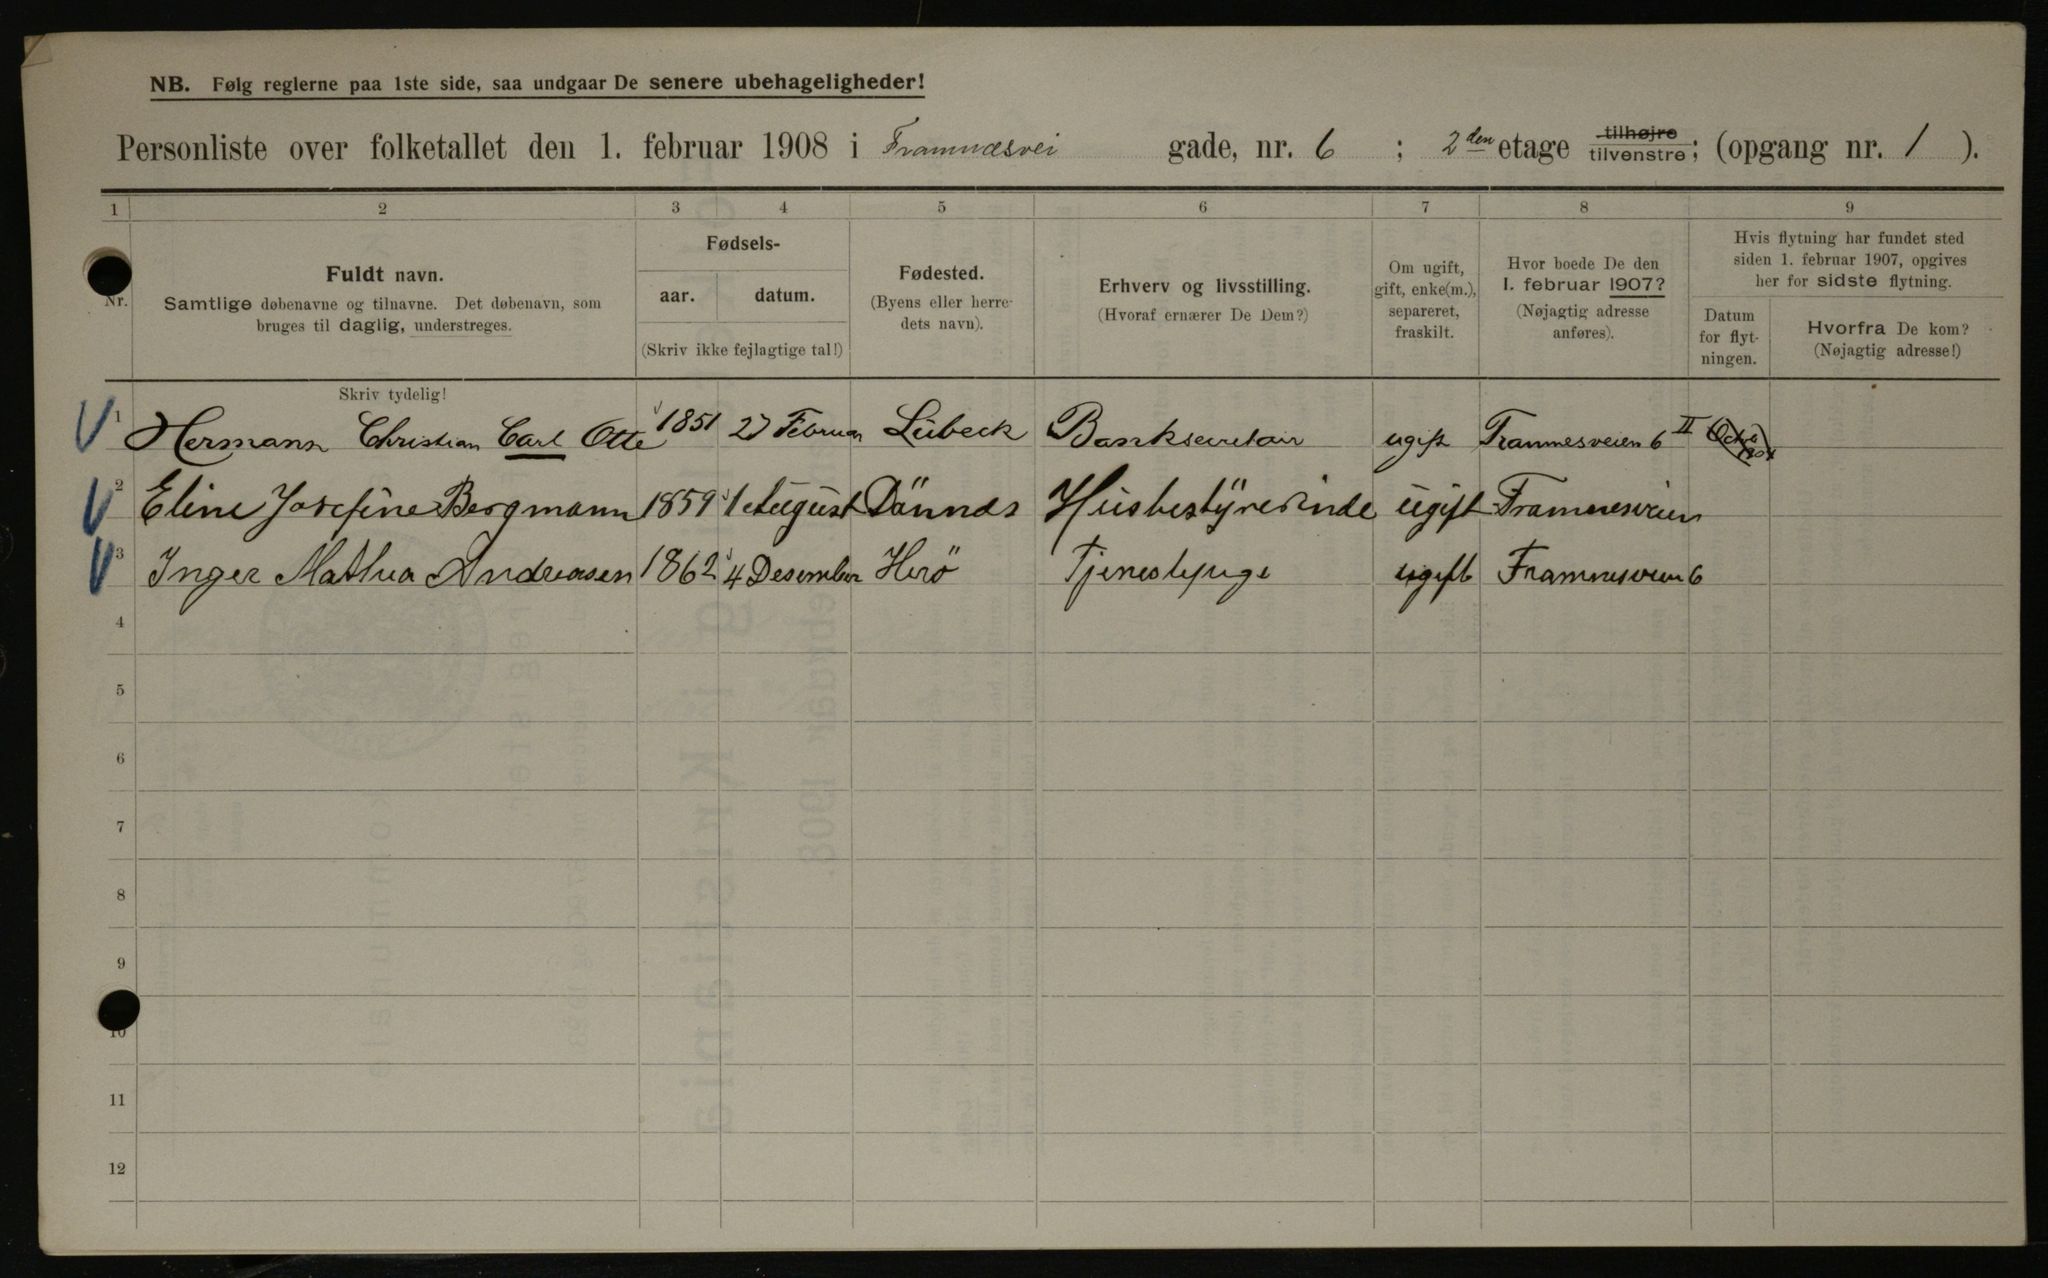 NB. Følg reglerne paa 1ste side, saa undgaar De senere ubehageligheder!
Personliste over folketallet den 1. februar 1908 i Framnæsvei gade, nr. 6 ; 2den etage tilhøjre tilvenstre; (opgang nr. 1 ).
1 2 3 4 5 6 7 8 9
Nr.
Fuldt navn.
Samtlige døbenavne og tilnavne. Det døbenavn, som
bruges til daglig, understreges.
Fødsels-
aar. datum.
(Skriv ikke fejlagtige tal!)
Fødested.
(Byens eller herre-
dets navn).
Erhverv og livsstilling.
(Hvoraf ernærer De Dem?)
Om ugift,
gift, enke(m.),
separeret,
fraskilt.
Hvor boede De den
1. februar 1907?
(Nøjagtig adresse
anføres).
Hvis flytning har fundet sted
siden 1. februar 1907, opgives
her for sidste flytning.
Datum
for flyt-
ningen.
Hvorfra De kom?
(Nøjagtig adresse!)
Skriv tydelig!
1 Hermann Christian Carl Otte 1851 27 Februar Lübeck Banksecretair ugift Framnesveien 6 II
2 Eline Josefine Bergmann 1859 1 August Dønnes Husbestyrerinde ugift Framnesveien
3 Inger Mathea Andreasen 1862 4 Desember Herö Tjenestepige ugift Framnesveien 6
4
5
6
7
8
9
10
11
12